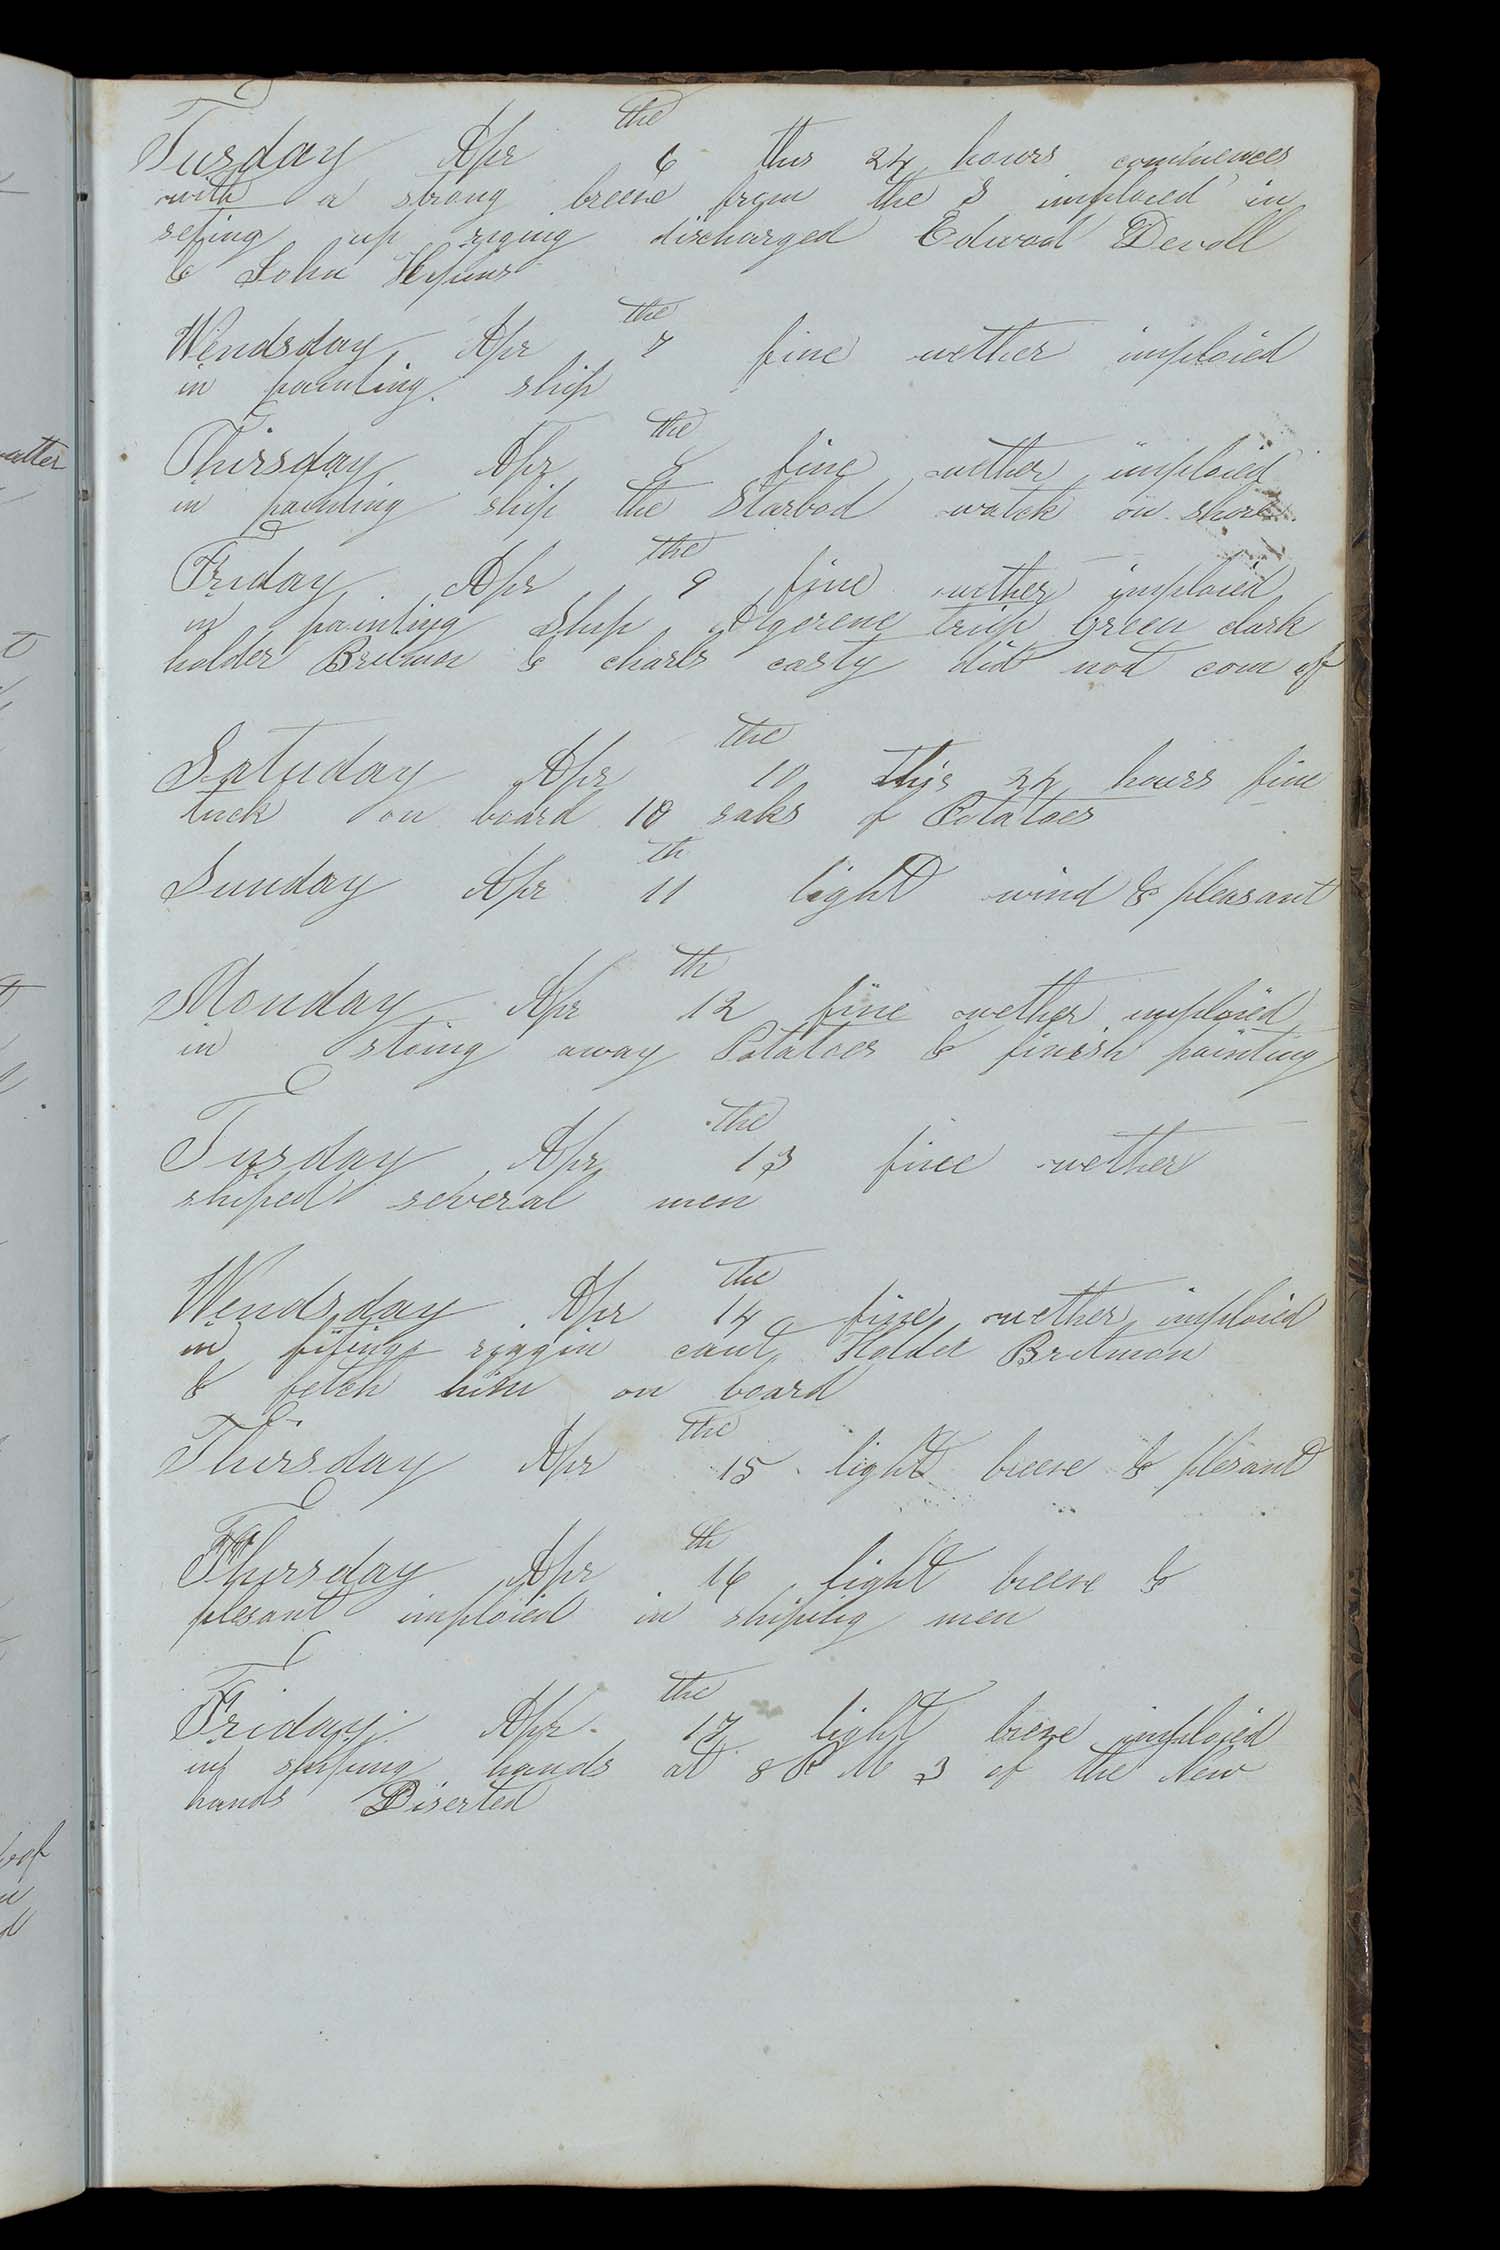 Tusday Apr the 6 this 24 hours commences
with a strong breese from the S imploied in
seting up riging discharged Edwod Devoll
& John
Wendsday Apr the 7 fine wether imploied
in painting ship
Thirsday Apr the 8 fine wether imploied
in painting ship the Starbod watch on shore
Friday Apr the 9 fine wether imploied
in painting Ship Green clark
holder Britman & charls casty did not com of
Satuday Apr the 10 This 24 hours fine
tuck on board 10 saks of Potatoes
Sunday Apr th 11 light wind & pleasant
Monday Apr th 12 fine wether imploied
in stoing away Potatoes & finish painting
Tusday Apr the 13 fine wether
shiped several men
Wendsday Apr the 14 fine wether imploied
in riggin caut Holder Britman
& fetch him on board
Thirsday Apr the 15 light breese & plesant
Thursday Apr th 16 light breese &
plesant imploied in shiping men
Friday Apr the 17 light breze imploied
in shiping hands at 8 P M 3 of the New
hands Diserted
atter